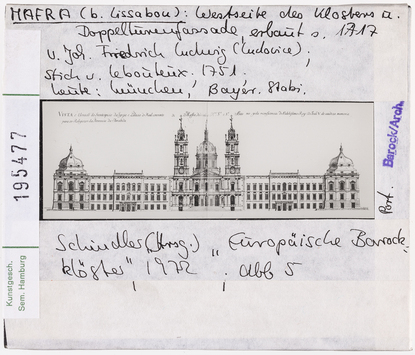 MAFRA (b. Lissabon): Westseite des Klosters m.
Doppelturmfassade, erbaut s. 1717
v. Joh. Friedrich Ludwig (Ludovice).
Stich v. Lebouteux. 1751.
Heute: München, Bayer. Stabi.
195477
Barock/Arch.
Port.
Schindler (Hrsg.) „Europäische Barock-
klöster" 1972. Abb 5
Kunstgesch.
Sem. Hamburg